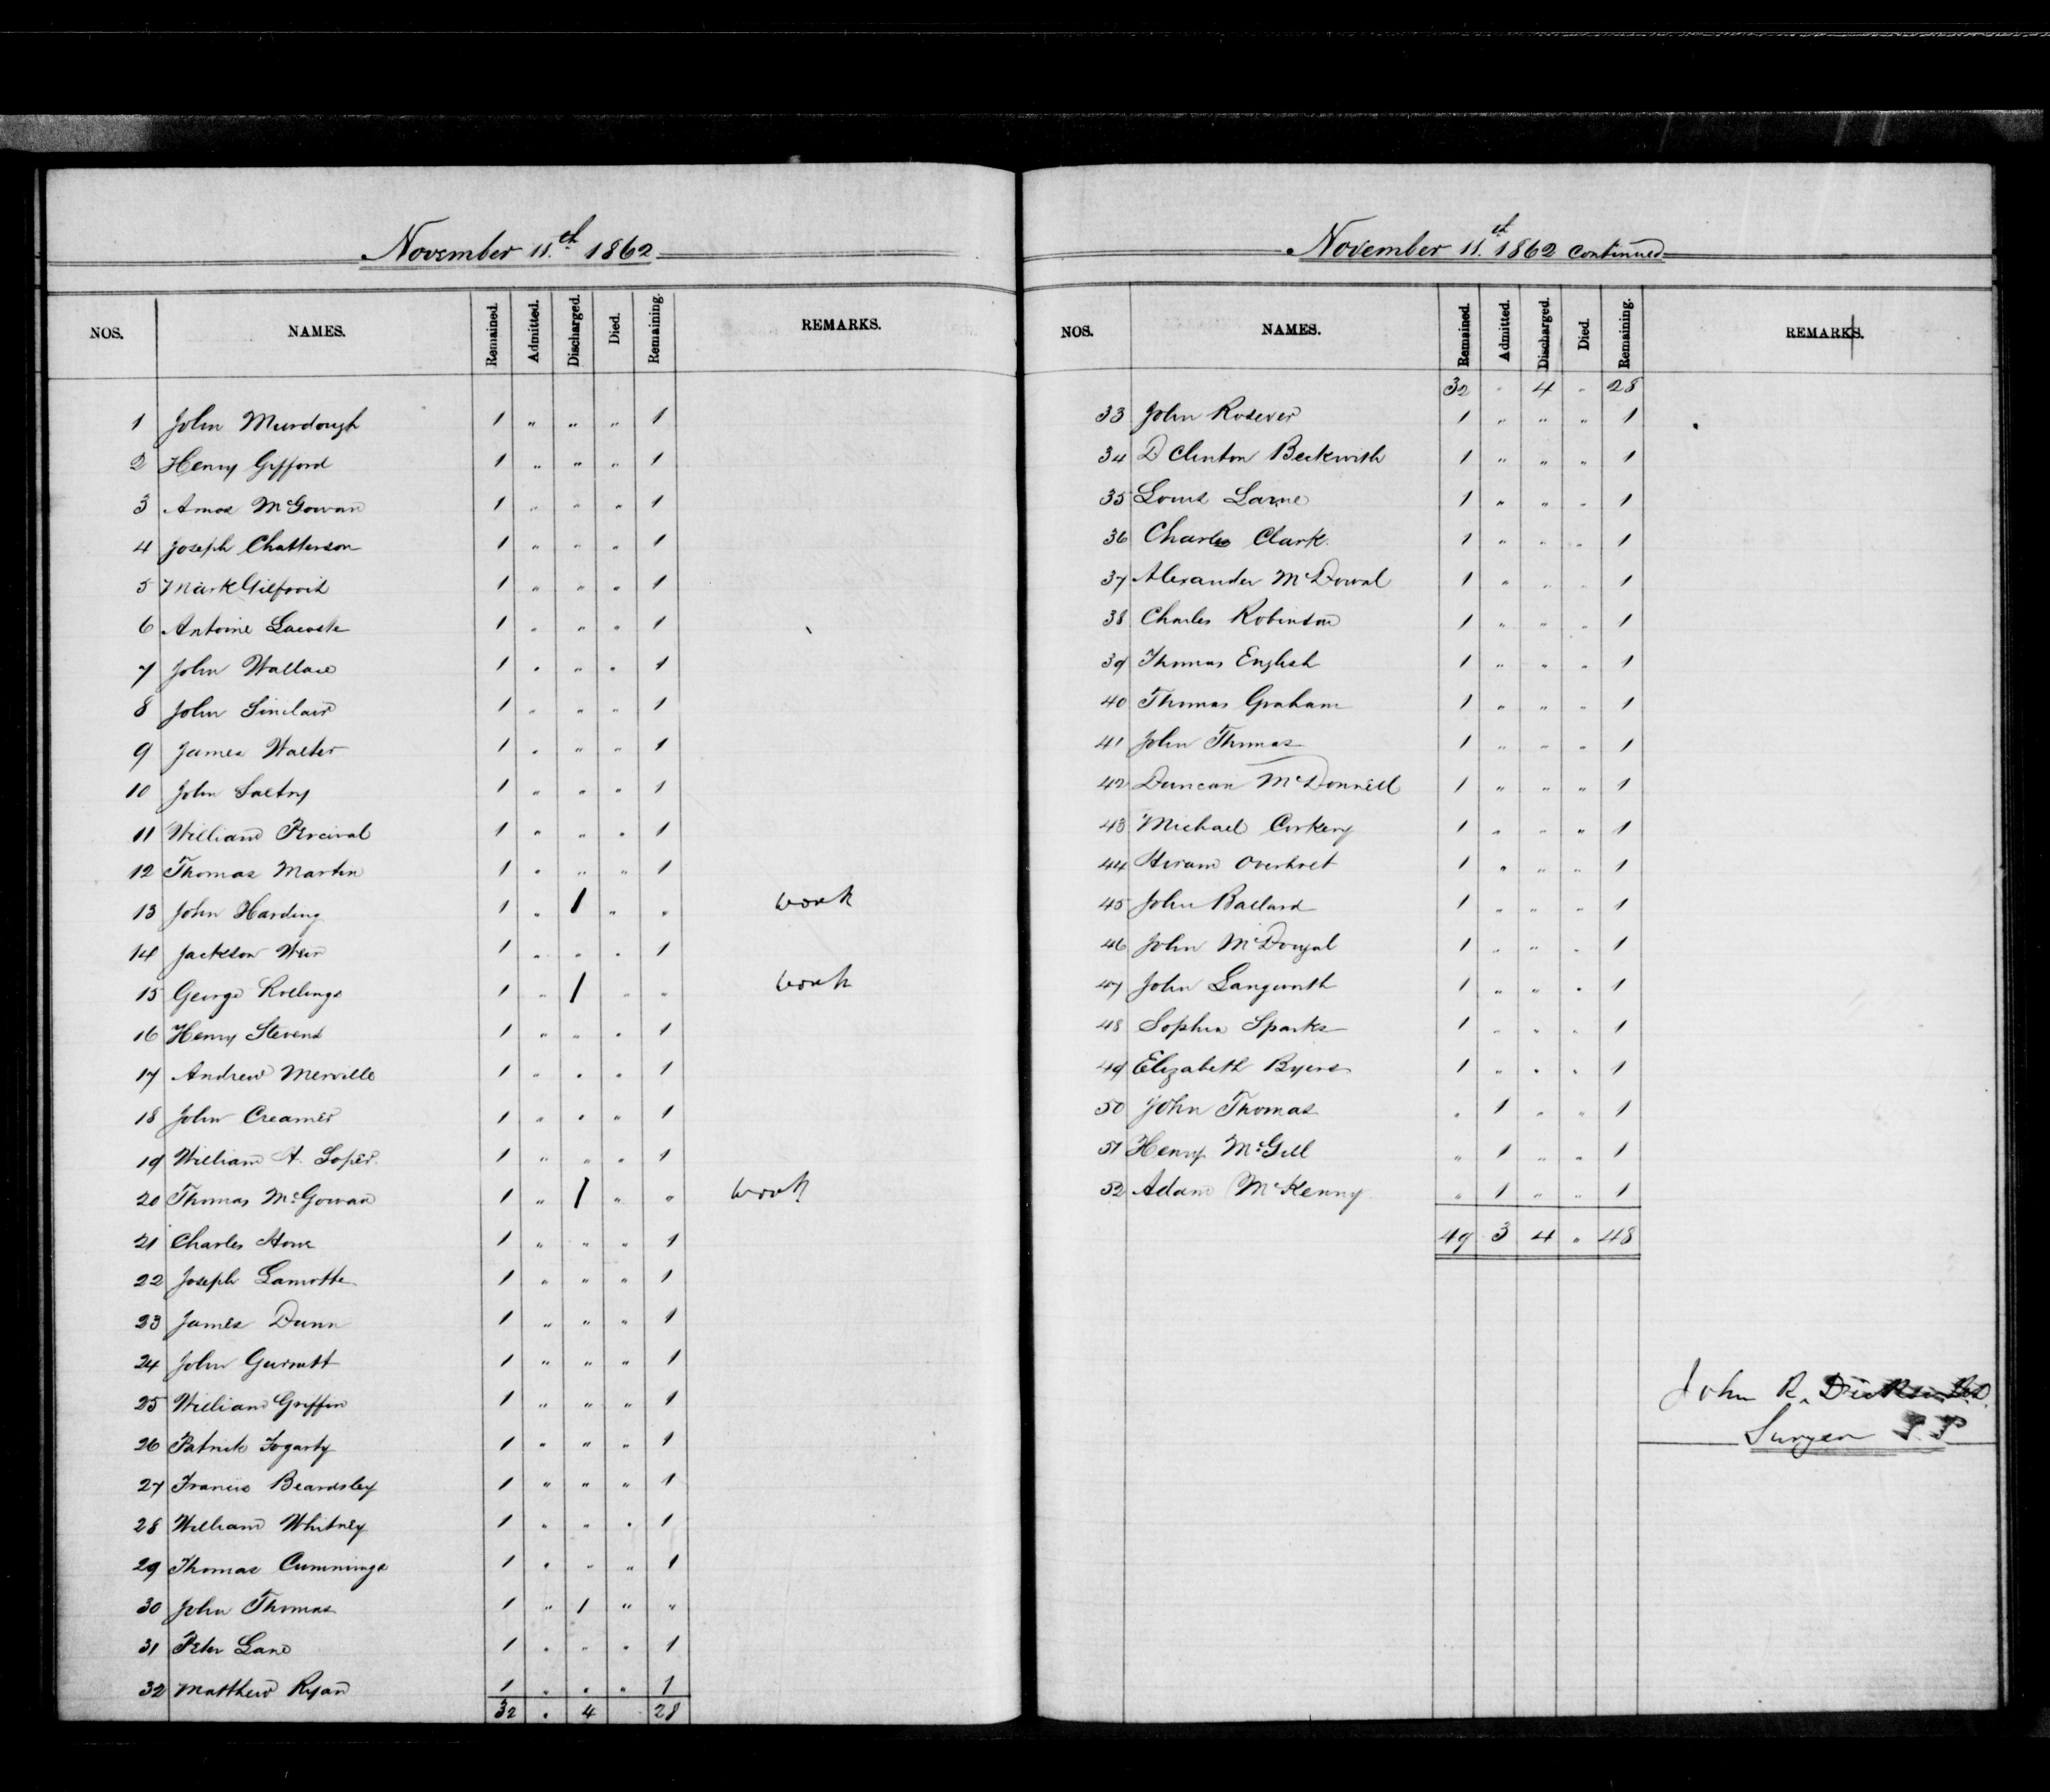 November 11.th 1862
NOS. NAMES. Remained. Admitted. Discharged. Died. Remaining. REMARKS.
1 John Murdough 1 " " " 1
2 Henry Gifford 1 " " " 1
3 Amos McGowan 1 " " " 1
4 Joseph Chatterson 1 " " " 1
5 Mark 1 " " " 1
6 Antoine Lacoste 1 " " " 1
7 John Wallace 1 " " " 1
8 John Sinclair 1 " " " 1
9 James Walter 1 " " " 1
10 John Saltry 1 " " " 1
11 William Percival 1 " " " 1
12 Thomas Martin 1 " " " 1
13 John Harding 1 " 1 " " work
14 Jackson Weir 1 " " " 1
15 George Rollings 1 " 1 " " work
16 Henry Stevens 1 " " " 1
17 Andrew Merville 1 " " " 1
18 John Creamer 1 " " " 1
19 William A. Soper 1 " " " 1
20 Thomas McGowan 1 " 1 " " work
21 Charles 1 " " " 1
22 Joseph Lamotte 1 " " " 1
23 James Dunn 1 " " " 1
24 John Gurnett 1 " " " 1
25 William Griffin 1 " " " 1
26 Patrick Fogarty 1 " " " 1
27 Francis Beardsley 1 " " " 1
28 William Whitney 1 " " " 1
29 Thomas Cummings 1 " " " 1
30 John Thomas 1 " 1 " "
31 Peter Lane 1 " " " 1
32 Matthew Ryan 1 " " " 1
32 " 4 28
November 11.th 1862 Continued
NOS. NAMES. Remained. Admitted. Discharged. Died. Remaining. REMARKS.
32 " 4 " 28
33 John Rosever 1 " " " 1
34 D Clinton Beckwith 1 " " " 1
35 Louis 1 " " " 1
36 Charles Clark 1 " " " 1
37 Alexander McDowal 1 " " " 1
38 Charles Robinson 1 " " " 1
39 Thomas English 1 " " " 1
40 Thomas Graham 1 " " " 1
41 John Thomas 1 " " " 1
42 Duncan McDonnell 1 " " " 1
43 Michael Corkery 1 " " " 1
44 Hiram Overholt 1 " " " 1
45 John Ballard 1 " " " 1
46 John McDougal 1 " " " 1
47 John Langworth 1 " " " 1
48 Sophia Sparks 1 " " " 1
49 Elizabeth Byers 1 " " " 1
50 John Thomas " 1 " " 1
51 Henry McGill " 1 " " 1
52 Adam McKenny " 1 " " 1
49 3 4 " 48
John R. Dickson
Surgeon P.P